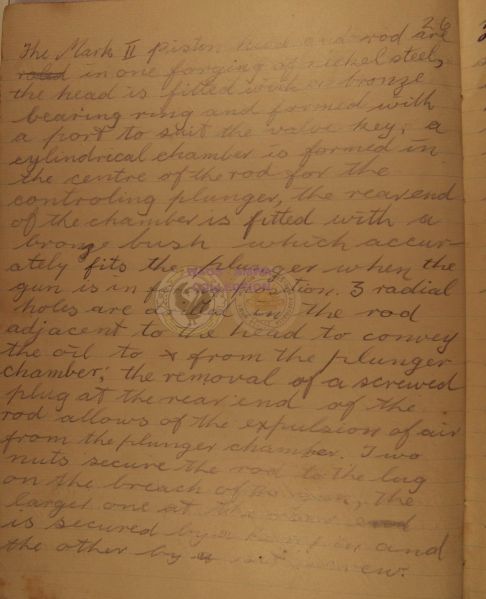 26
The Mark II piston head and rod are
in one forging of nickel steel,
the head is fitted with a bronze
bearing ring and formed with
a port to suit the valve key; a
cylindrical chamber is formed in
the centre of the rod for the
controling plunger, the rear end
of the chamber is fitted with a
bronze bush which accur-
ately fits the plunger when the
gun is in position. 3 radial
holes are drilled in the rod
adjacent to the head to convey
the oil to & from the plunger
chamber; the removal of a screwed
plug at the rear end of the
rod allows of the expulsion of air
from the plunger chamber. Two
nuts secure the rod to the lug
on the breach of the gun, the
larger one at the
is secured by a and
the other by a screw.